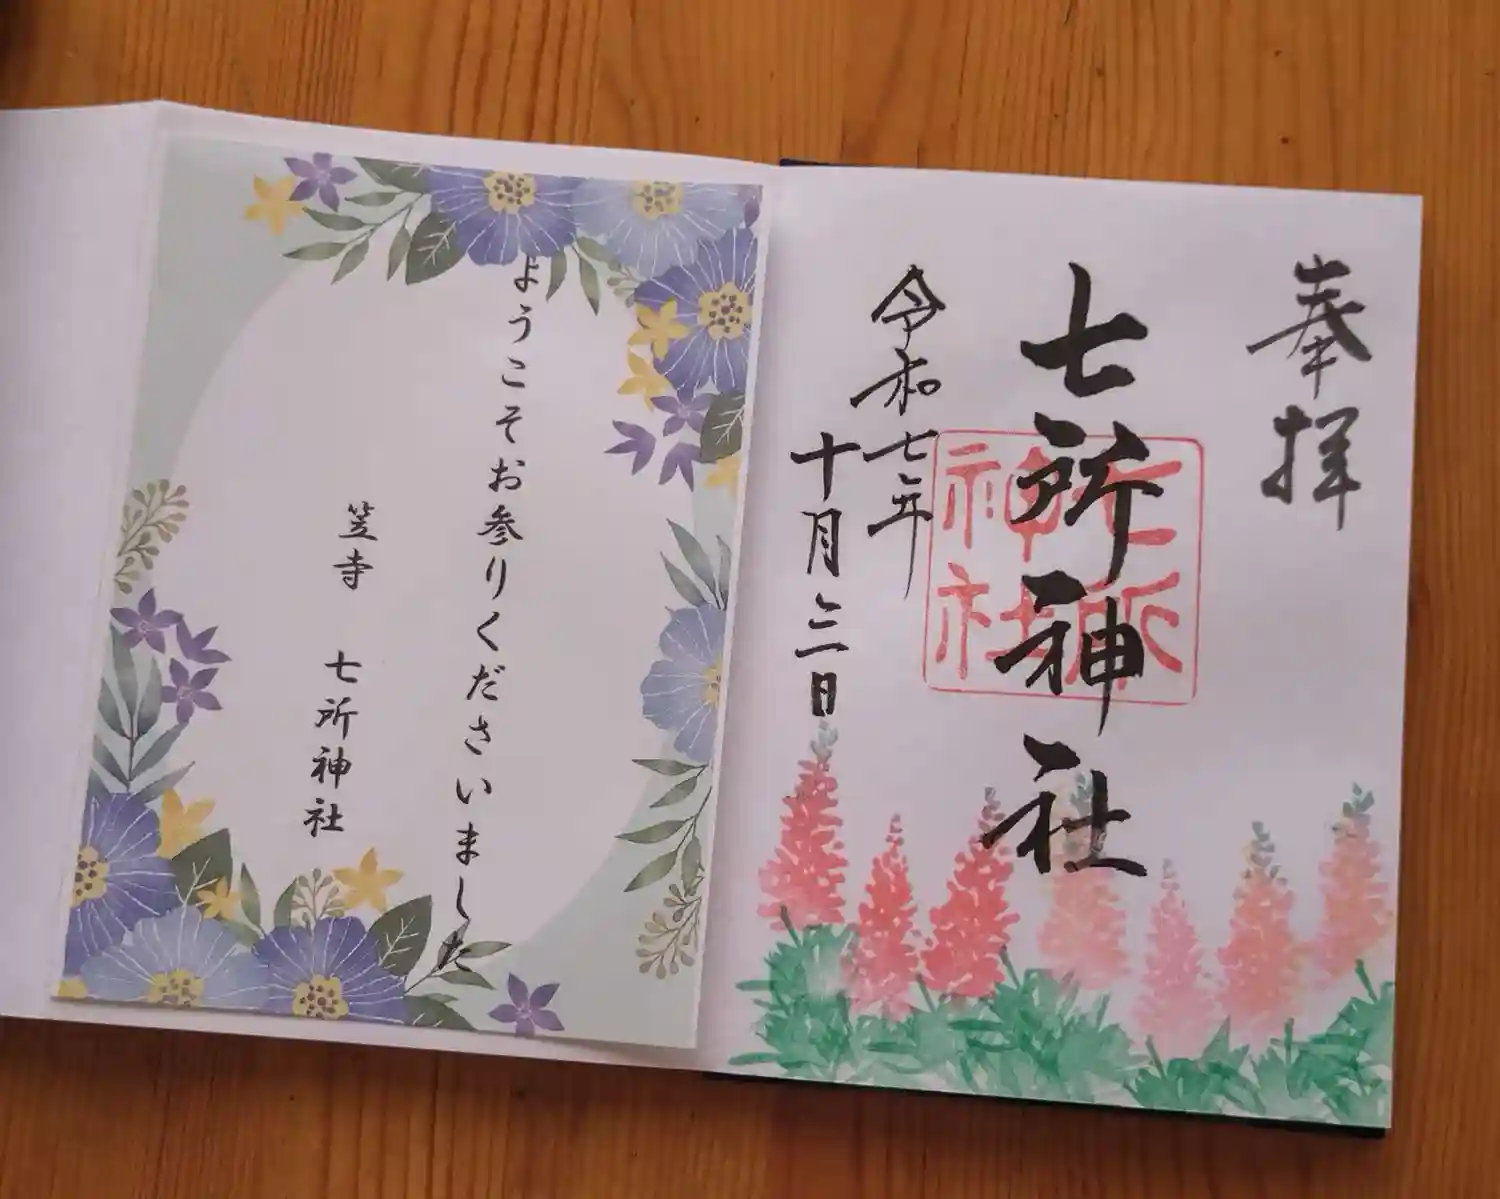 奉拝
七所神社
七所
神社
令和七年
十月三日
ようこそお参りくださいました
笠寺 七所神社